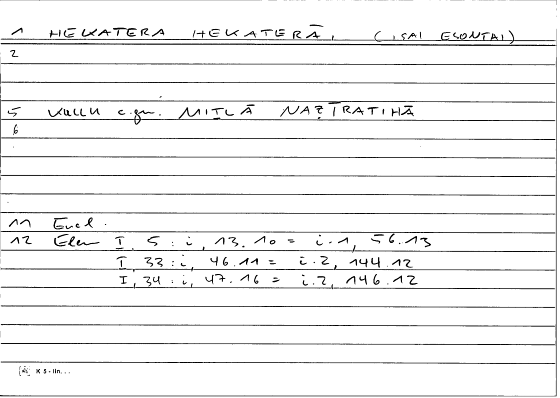 1 HEKATERA HEKATERĀ, (ISAI ESONTAI)
2
5 KULLU c.gen. MIṮLĀ NAẒĪRATIHĀ
6
11 Eucl.
12 Elem I, 5 : i, 13.10 = i.1, 56.13
I, 33 : i, 46.11 = i.2, 144.12
I, 34 : i, 47.16 = i.2, 146.12
K 5 - lin...